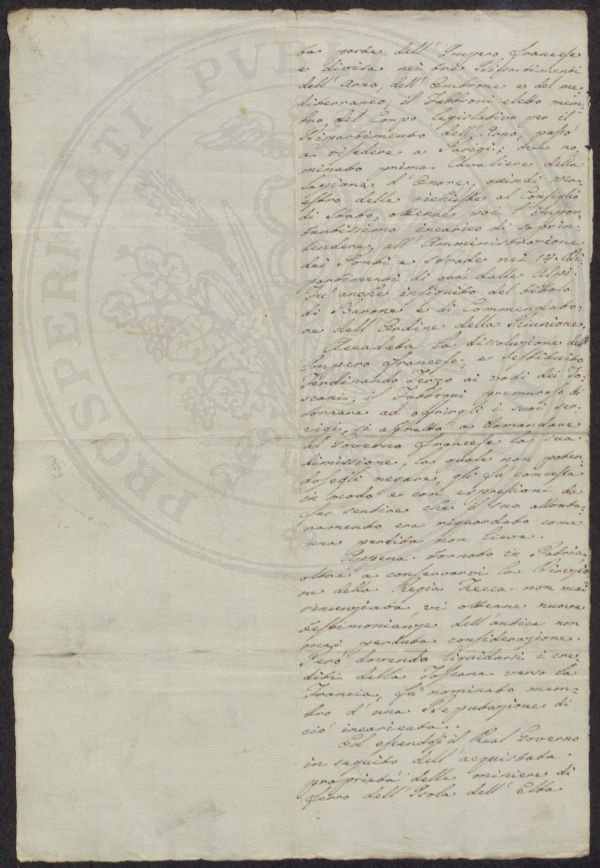 PROSPERITATI PUBL
ta parte dell' Impero francese
e divisa nei trè Dipartimenti
dell' Arno, dell' Ombrone e del me-
diterraneo, il Fabbroni eletto mem-
bro del Corpo Legislativo per il
Dipartimento dell' Arno, passò
a risedere a Parigi; ove no-
minato prima Cavaliere della
Legione d' Onore, quindi Mae-
stro delle richieste al Consiglio
di Stato, ottenne poi l' impor-
tantissimo incarico di soprin-
tendere all' Amministrazione
dei Ponti e strade nei 14. Di-
partimenti di quà dalle Alpi.
Fù anche insignito del titolo
di Barone e di Commendato-
re dell' Ordine della Riunione.
Accaduta la dissoluzione dell'
Impero francese, e restituito
Ferdinando Terzo ai voti dei To-
scani, il Fabbroni premuroso di
tornare ad offrirgli i suoi ser-
vigi, si affrettò a domandare
al Governo francese la sua
dimissione, la quale non poten-
dosegli negare, gli fù concessa
in modo e con espressioni da
far sentire che il suo allonta-
namento era riguardato come
una perdita non lieve.
Appena tornato in Patria,
oltre a conservarvi la Direzio-
ne della Regia Zecca non mai
rinunziata, vi ottenne nuove
testimonianze dell' antica non
mai perduta considerazione.
Però dovendo liquidarsi i cre-
diti della Toscana verso la
Francia, fù nominato mem-
bro d' una Deputazione di
ciò incaricata.
Ed essendo il Real Governo
in seguito dell' acquistata
proprietà delle miniere di
ferro dell' Isola dell' Elba